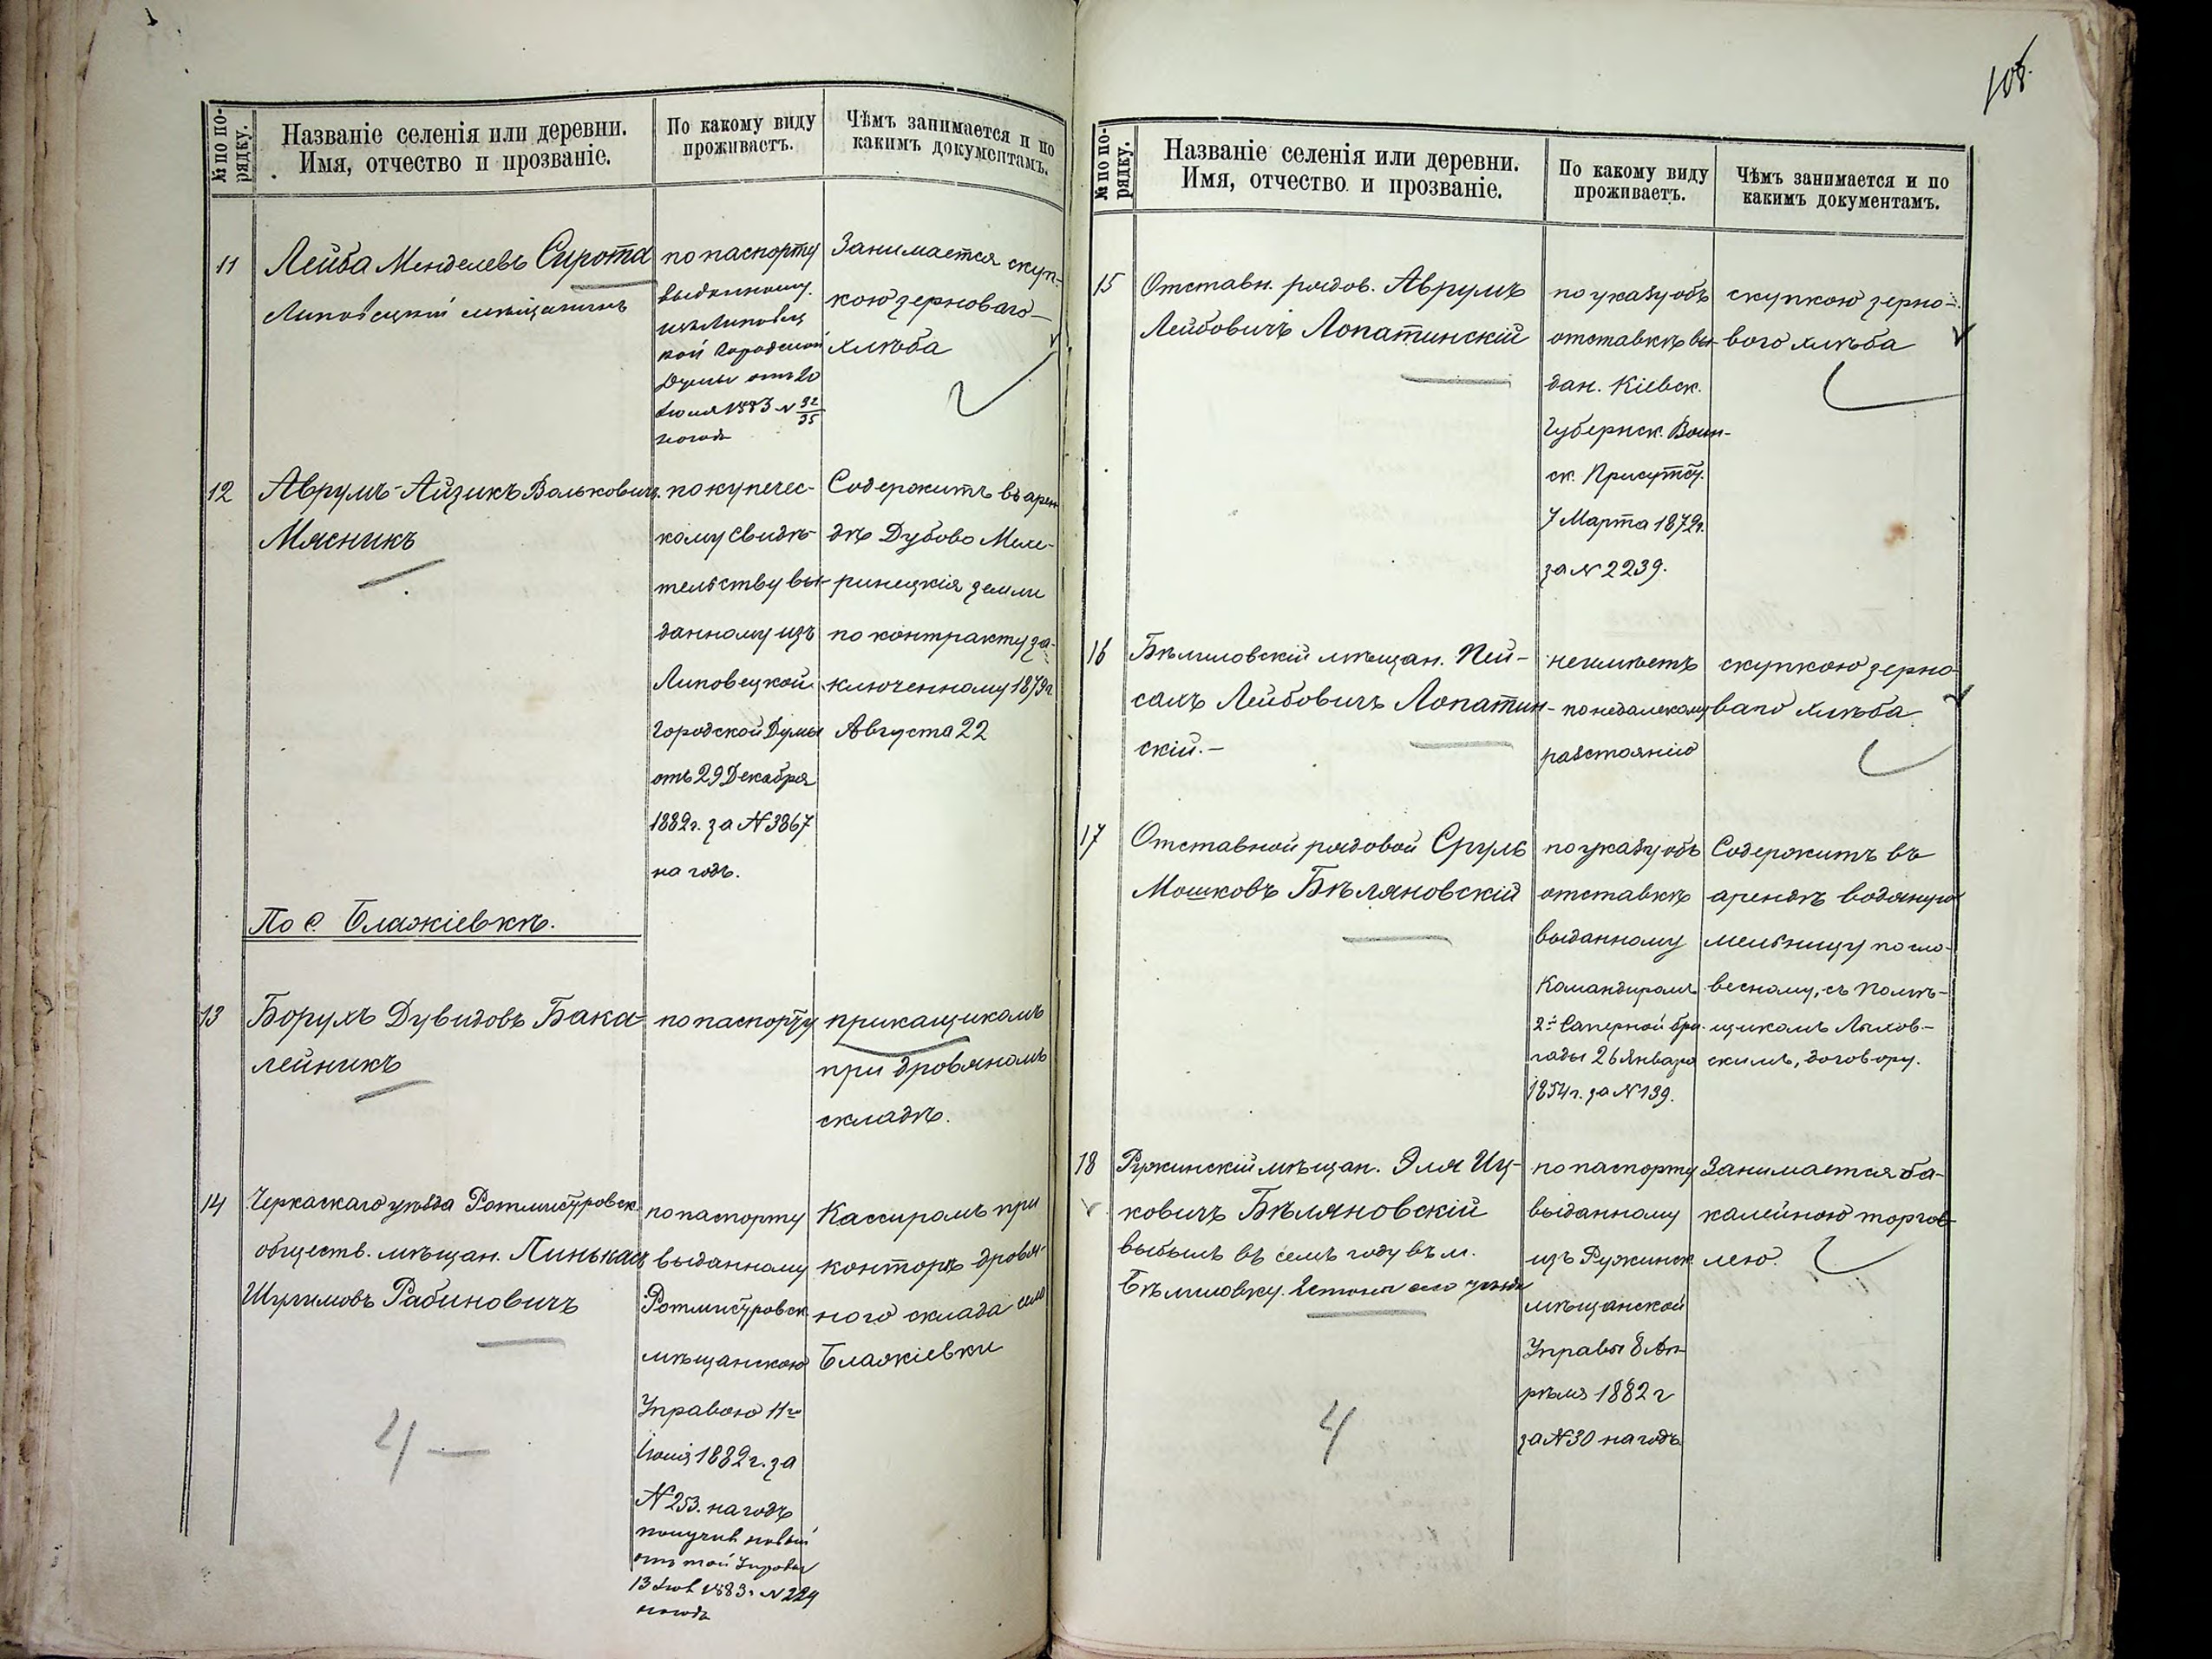 № по по-
рядку.
Названіе селенія или деревни.
Имя, отчество и прозваніе.
По какому виду
проживаетъ.
Чѣмъ занимается и по
какимъ документамъ.
11
Лейба Менделевъ Сирота
Липовецкій мѣщанинъ
по паспорту
выданному
изъ Липовец
кой Городской
Думы отъ 20
Іюля 1883 №32/35
на годъ
Занимается скуп-
кою зерноваго
хлѣба
12
Аврумъ-Айзикъ Вольковичъ
Мясникъ
по купечес-
кому свидѣ-
тельству вы-
данному изъ
Липовецкой
Городской Думы
отъ 29 Декабря
1882г. за №3867
на годъ.
Содержитъ въ арен
дѣ Дубово Меле-
ринецкія земли
по контракту за-
ключенному 1879г
Августа 22
По с Блажіевкѣ.
13
Борухъ Дувидовъ Бака-
лейникъ
по паспорту
прикащикомъ
при дровяномъ
складѣ.
14
Черкаскаго уѣзда Ротмистровск.
обществ. мѣщан. Пинькас
Шулимовъ Рабиновичъ
по паспорту
выданному
Ротмистровск.
мѣщанскою
Управою 11го
Іюля 1882г. за
№253. на годъ
получив новый
отъ той Управы
13 1883г №224
на годъ
Кассиромъ при
конторѣ дровя-
ного склада села
Блажіевки
4 —
105.
№ по по-
рядку.
Названіе селенія или деревни.
Имя, отчество и прозваніе.
По какому виду
проживаетъ.
Чѣмъ занимается и по
какимъ документамъ.
15
Отставн. рядов. Аврумъ
Лейбовичъ Лопатинскій
по указу объ
отставкѣ вы-
дан. Кіевск.
Губернск. Воин-
ск. Присутст.
7 Марта 1872г.
за №2239.
скупкою зерно-
вого хлѣба
16
Бѣлиловскій мѣщан. Пей-
сахъ Лейбовичъ Лопатин-
скій.-
неимѣетъ
по недалекому
разстоянію
скупкою зерно
ваго хлѣба
17
Отставной рядовой Сруль
Мошковъ Бѣляновскій
по указу объ
отставкѣ
выданному
Командиромъ
2й Саперной бри-
гады 26 Января
1854г. за №139.
Содержитъ въ
арендѣ водяную
мельницу по сло-
весному, съ помѣ-
щикомъ Ляхов-
скимъ, договору.
18
Ружинскій мѣщан. Эля Иц-
ковичъ Бѣляновскій
выбылъ въ семъ году въ м.
Бѣлиловку.
по паспорту
выданному
изъ Ружинск.
мѣщанской
Управы 8 Ап-
рѣля 1882г
за №30 на годъ
Занимается ба-
калейною торгов-
лею.
4